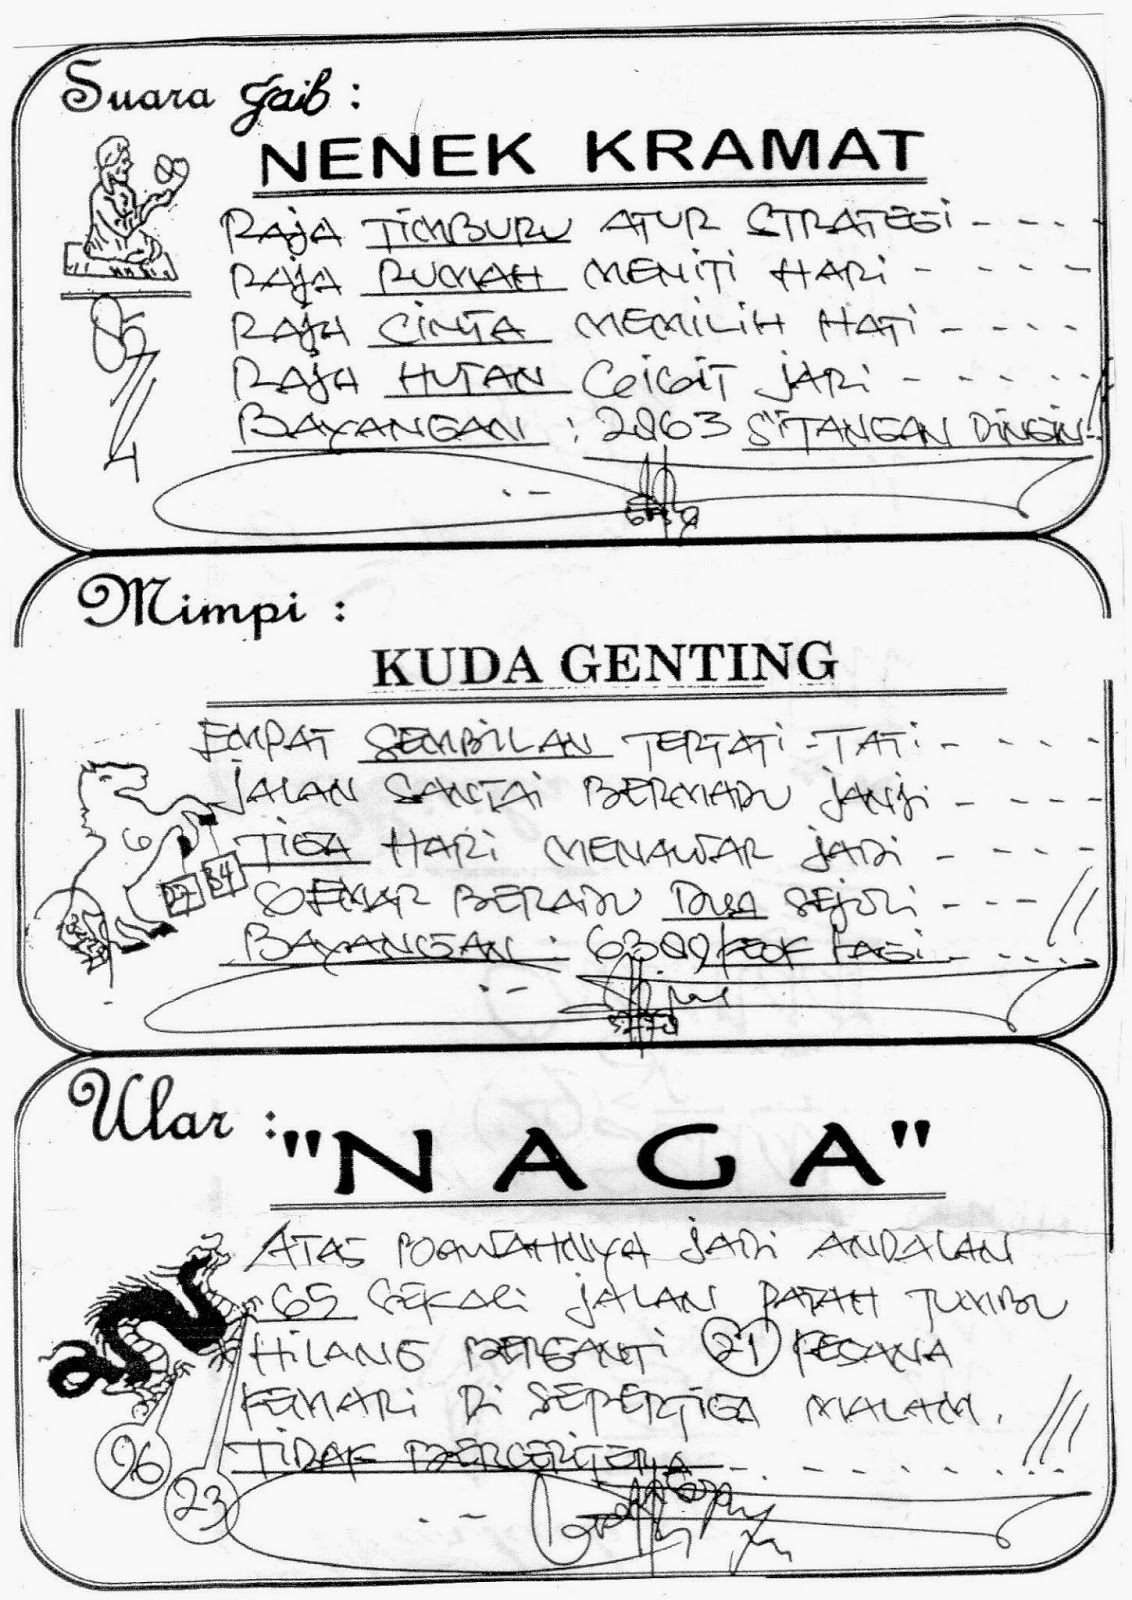 Suara Gaib :
NENEK KRAMAT
RAJA TIMBURU ATUR STRATEGI - - - -
RAJA RUMAH MENITI HARI - - - -
RAJA CINTA MEMILIH HATI - - - -
RAJA HUTAN GIGIT JARI - - - - -
BAYANGAN : 2863 SITANGAN DINGIN
85
4
Mimpi :
KUDA GENTING
EMPAT SEMBILAN TERTATI-TATI - - - -
JALAN SANTAI BERMADU JANJI - - - -
TIGA HARI MENAWAR JADI - - - -
27 34
SEMAR BERADU DUA SEJOLI - - -
BAYANGAN : 6309 PAGI
Ular :
"NAGA"
ATAS BAWAHNYA JADI ANDALAN
65 SEKALI JALAN PATAH TUMBU
HILANG BERGANTI 21 KESANA
KEMARI DI SEPERTIGA MALAM.
TIDAK BERCERITERA - . . . . . .
96
23